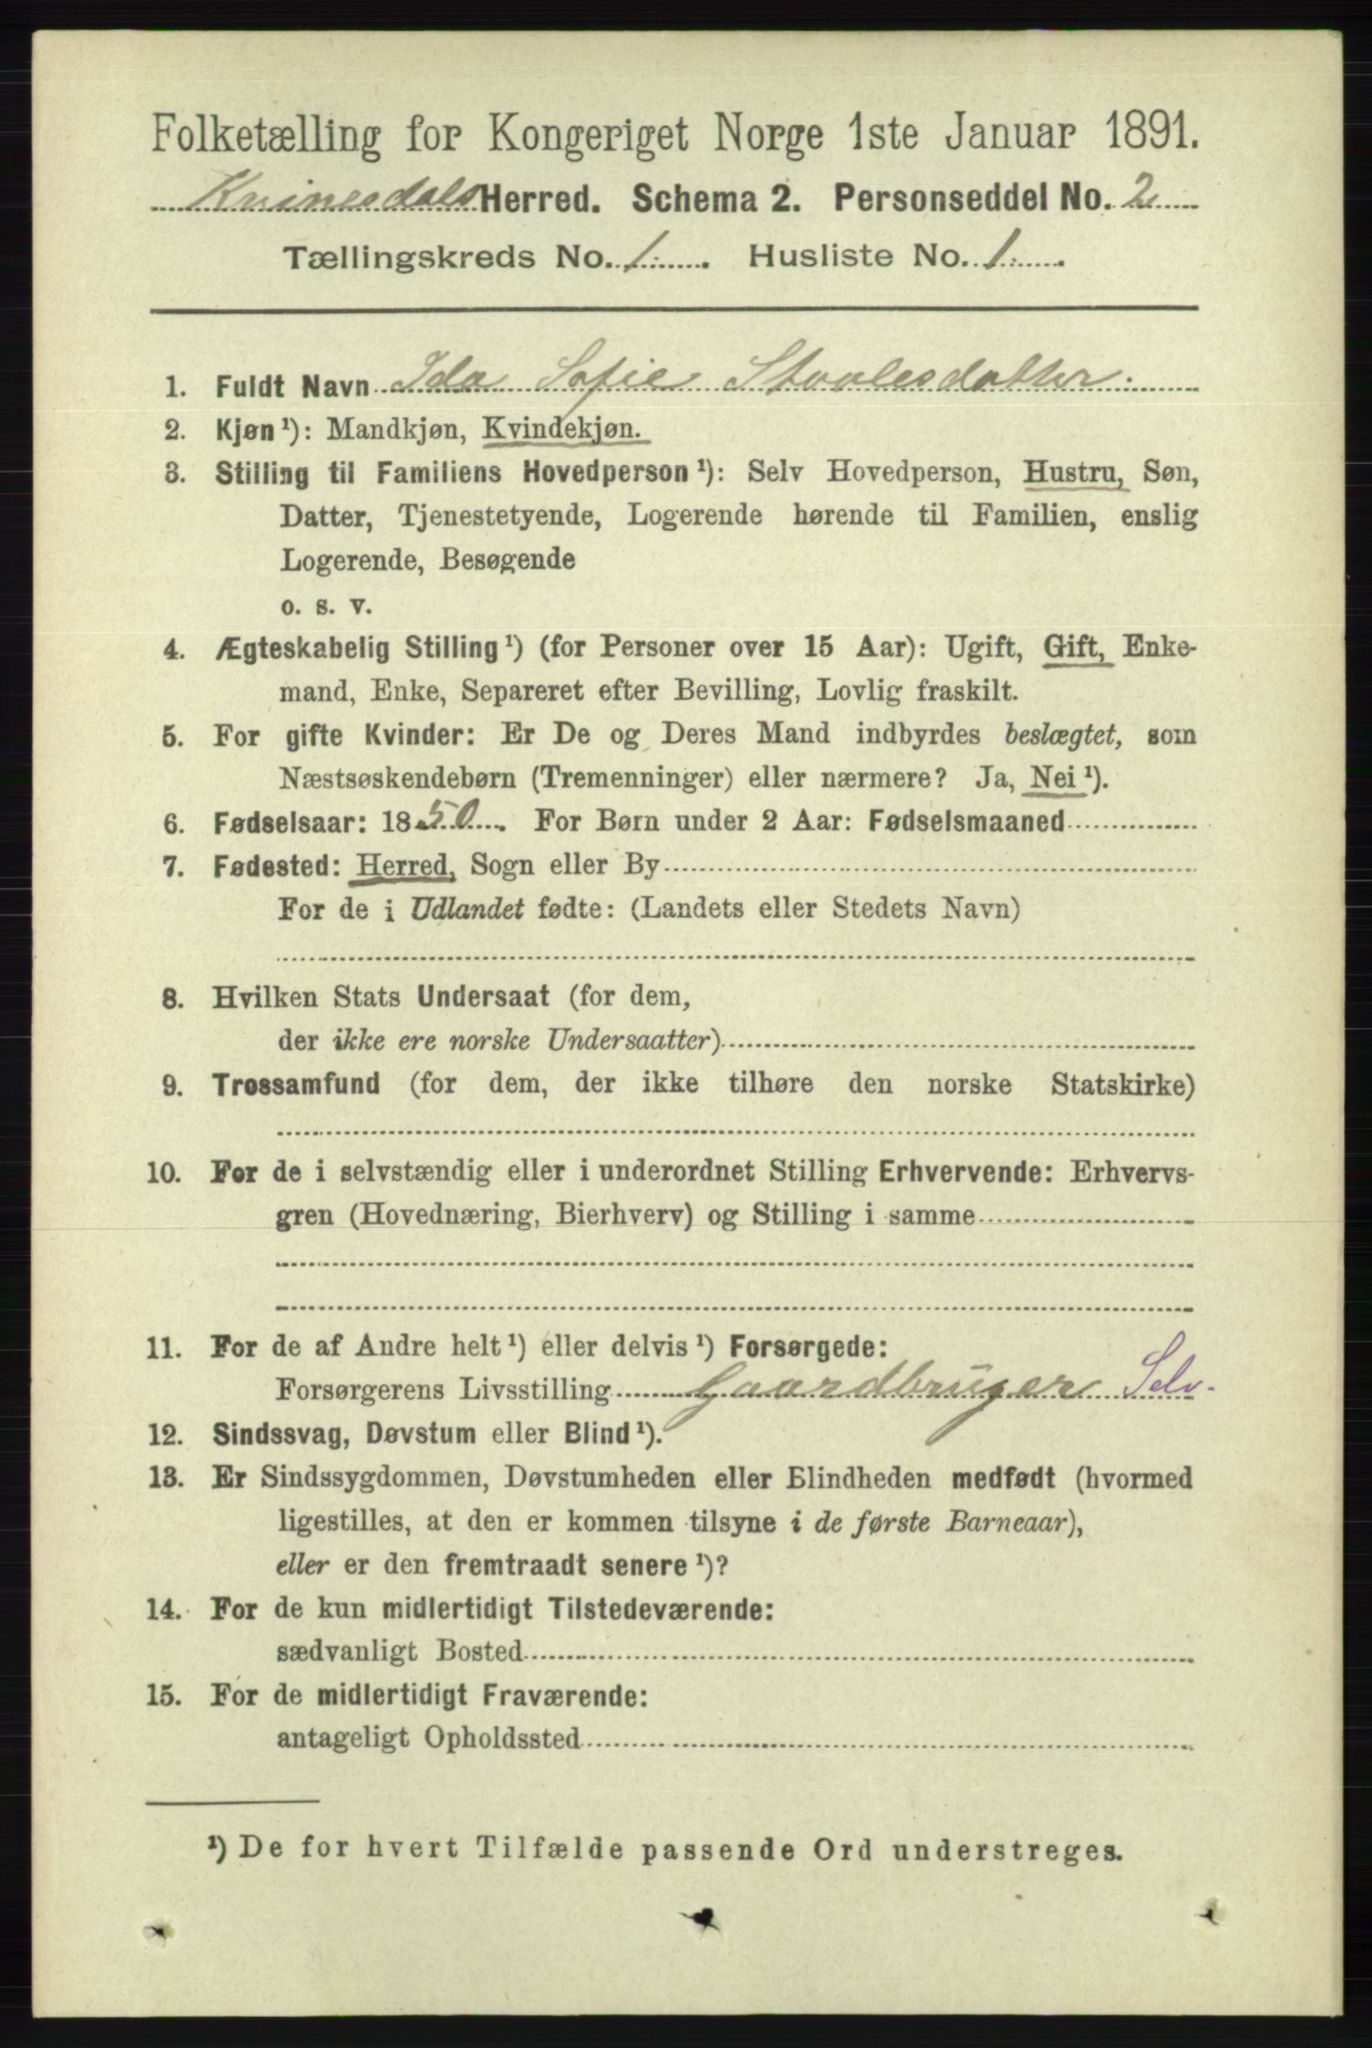 Folketælling for Kongeriget Norge 1ste Januar 1891.
Kvinesdals Herred. Schema 2. Personseddel No. 2
Tællingskreds No. 1. Husliste No. 1.
1. Fuldt Navn Ida Sofie Staalesdatter.
2. Kjøn ¹): Mandkjøn, Kvindekjøn.
3. Stilling til Familiens Hovedperson ¹): Selv Hovedperson, Hustru, Søn,
Datter, Tjenestetyende, Logerende hørende til Familien, enslig
Logerende, Besøgende
o. s. v.
4. Ægteskabelig Stilling ¹) (for Personer over 15 Aar): Ugift, Gift, Enke-
mand, Enke, Separeret efter Bevilling, Lovlig fraskilt.
5. For gifte Kvinder: Er De og Deres Mand indbyrdes beslægtet, som
Næstsøskendebørn (Tremenninger) eller nærmere? Ja, Nei ¹).
6. Fødselsaar: 1850. For Børn under 2 Aar: Fødselsmaaned
7. Fødested: Herred, Sogn eller By
For de i Udlandet fødte: (Landets eller Stedets Navn)
8. Hvilken Stats Undersaat (for dem,
der ikke ere norske Undersaatter)
9. Trossamfund (for dem, der ikke tilhøre den norske Statskirke)
10. For de i selvstændig eller i underordnet Stilling Erhvervende: Erhvervs-
gren (Hovednæring, Bierhverv) og Stilling i samme
11. For de af Andre helt ¹) eller delvis ¹) Forsørgede:
Forsørgerens Livsstilling Gaardbruger Selv.
12. Sindssvag, Døvstum eller Blind ¹).
13. Er Sindssygdommen, Døvstumheden eller Blindheden medfødt (hvormed
ligestilles, at den er kommen tilsyne i de første Barneaar),
eller er den fremtraadt senere ¹)?
14. For de kun midlertidigt Tilstedeværende:
sædvanligt Bosted
15. For de midlertidigt Fraværende:
antageligt Opholdssted
¹) De for hvert Tilfælde passende Ord understreges.